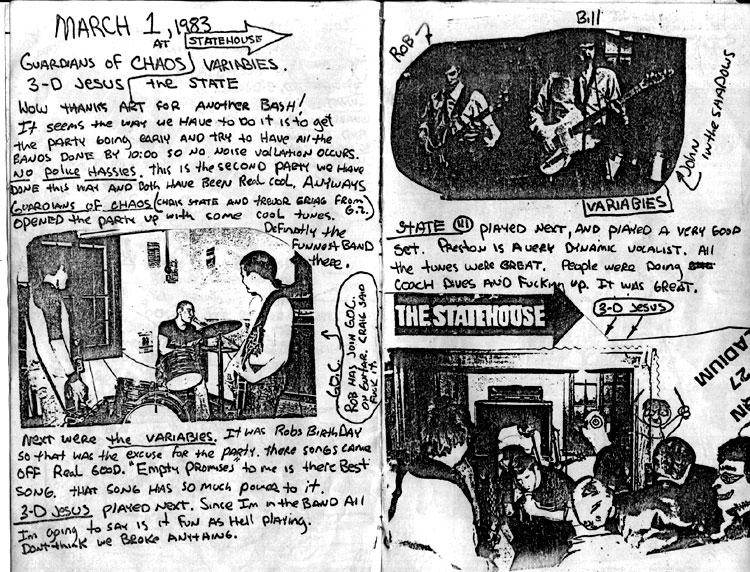 MARCH 1, 1983
AT STATEHOUSE
GUARDIANS OF CHAOS VARIABIES.
3-D JESUS the STATE
WOW THANKS ART FOR ANOTHER BASH!
IT SEEMS the WAY WE HAVE TO DO IT IS to get
the PARTY GOING EARLY AND TRY TO HAVE All the
BANDS DONE BY 10:00 SO NO NOISE VOLLATION OCCURS.
NO Police HASSIES. THIS IS the SECOND PARTY WE HAVE
DONE this WAY AND Both HAVE BEEN REAL COOL, ANYWAYS
GUARDIANS OF CHAOS (CHRIS STATE AND TREVOR GRIAG FROM
OPENED the PARTY UP WITH SOME COOL TUNES. G.I.)
Definatly the
FUNNEST BAND
there.
G.O.C. ↑
ROB HAS JOIN G.O.C.
ON GUITAR. CRAIG SAID
FUCK IT.
NEXT WERE the VARIABIES. IT WAS ROBS BIRTHDAY
SO that WAS the EXCUSE FOR the PARTY. there SONGS CAME
OFF REAL GOOD. "EMPTY PROMISES TO ME IS there BEST
SONG. THAT SONG HAS SO MUCH POWER to it.
3-D JESUS PLAYED NEXT. SINCE I'M IN the BAND All
I'm going to SAY IS it FUN AS Hell PLAYING.
DONT think WE BROKE ANYTHING.
ROB
Bill
JOHN IN the SHADOWS
VARIABIES
STATE PLAYED NEXT, AND PLAYED A VERY GOOD
SET. PRESTON IS A VERY DYNAMIC VOCALIST. All
the TUNES WERE GREAT. PEOPLE WERE DOING
COACH DIVES AND FUCKING UP. IT WAS GREAT.
THE STATEHOUSE
3-D JESUS
ADIUM
27
AN